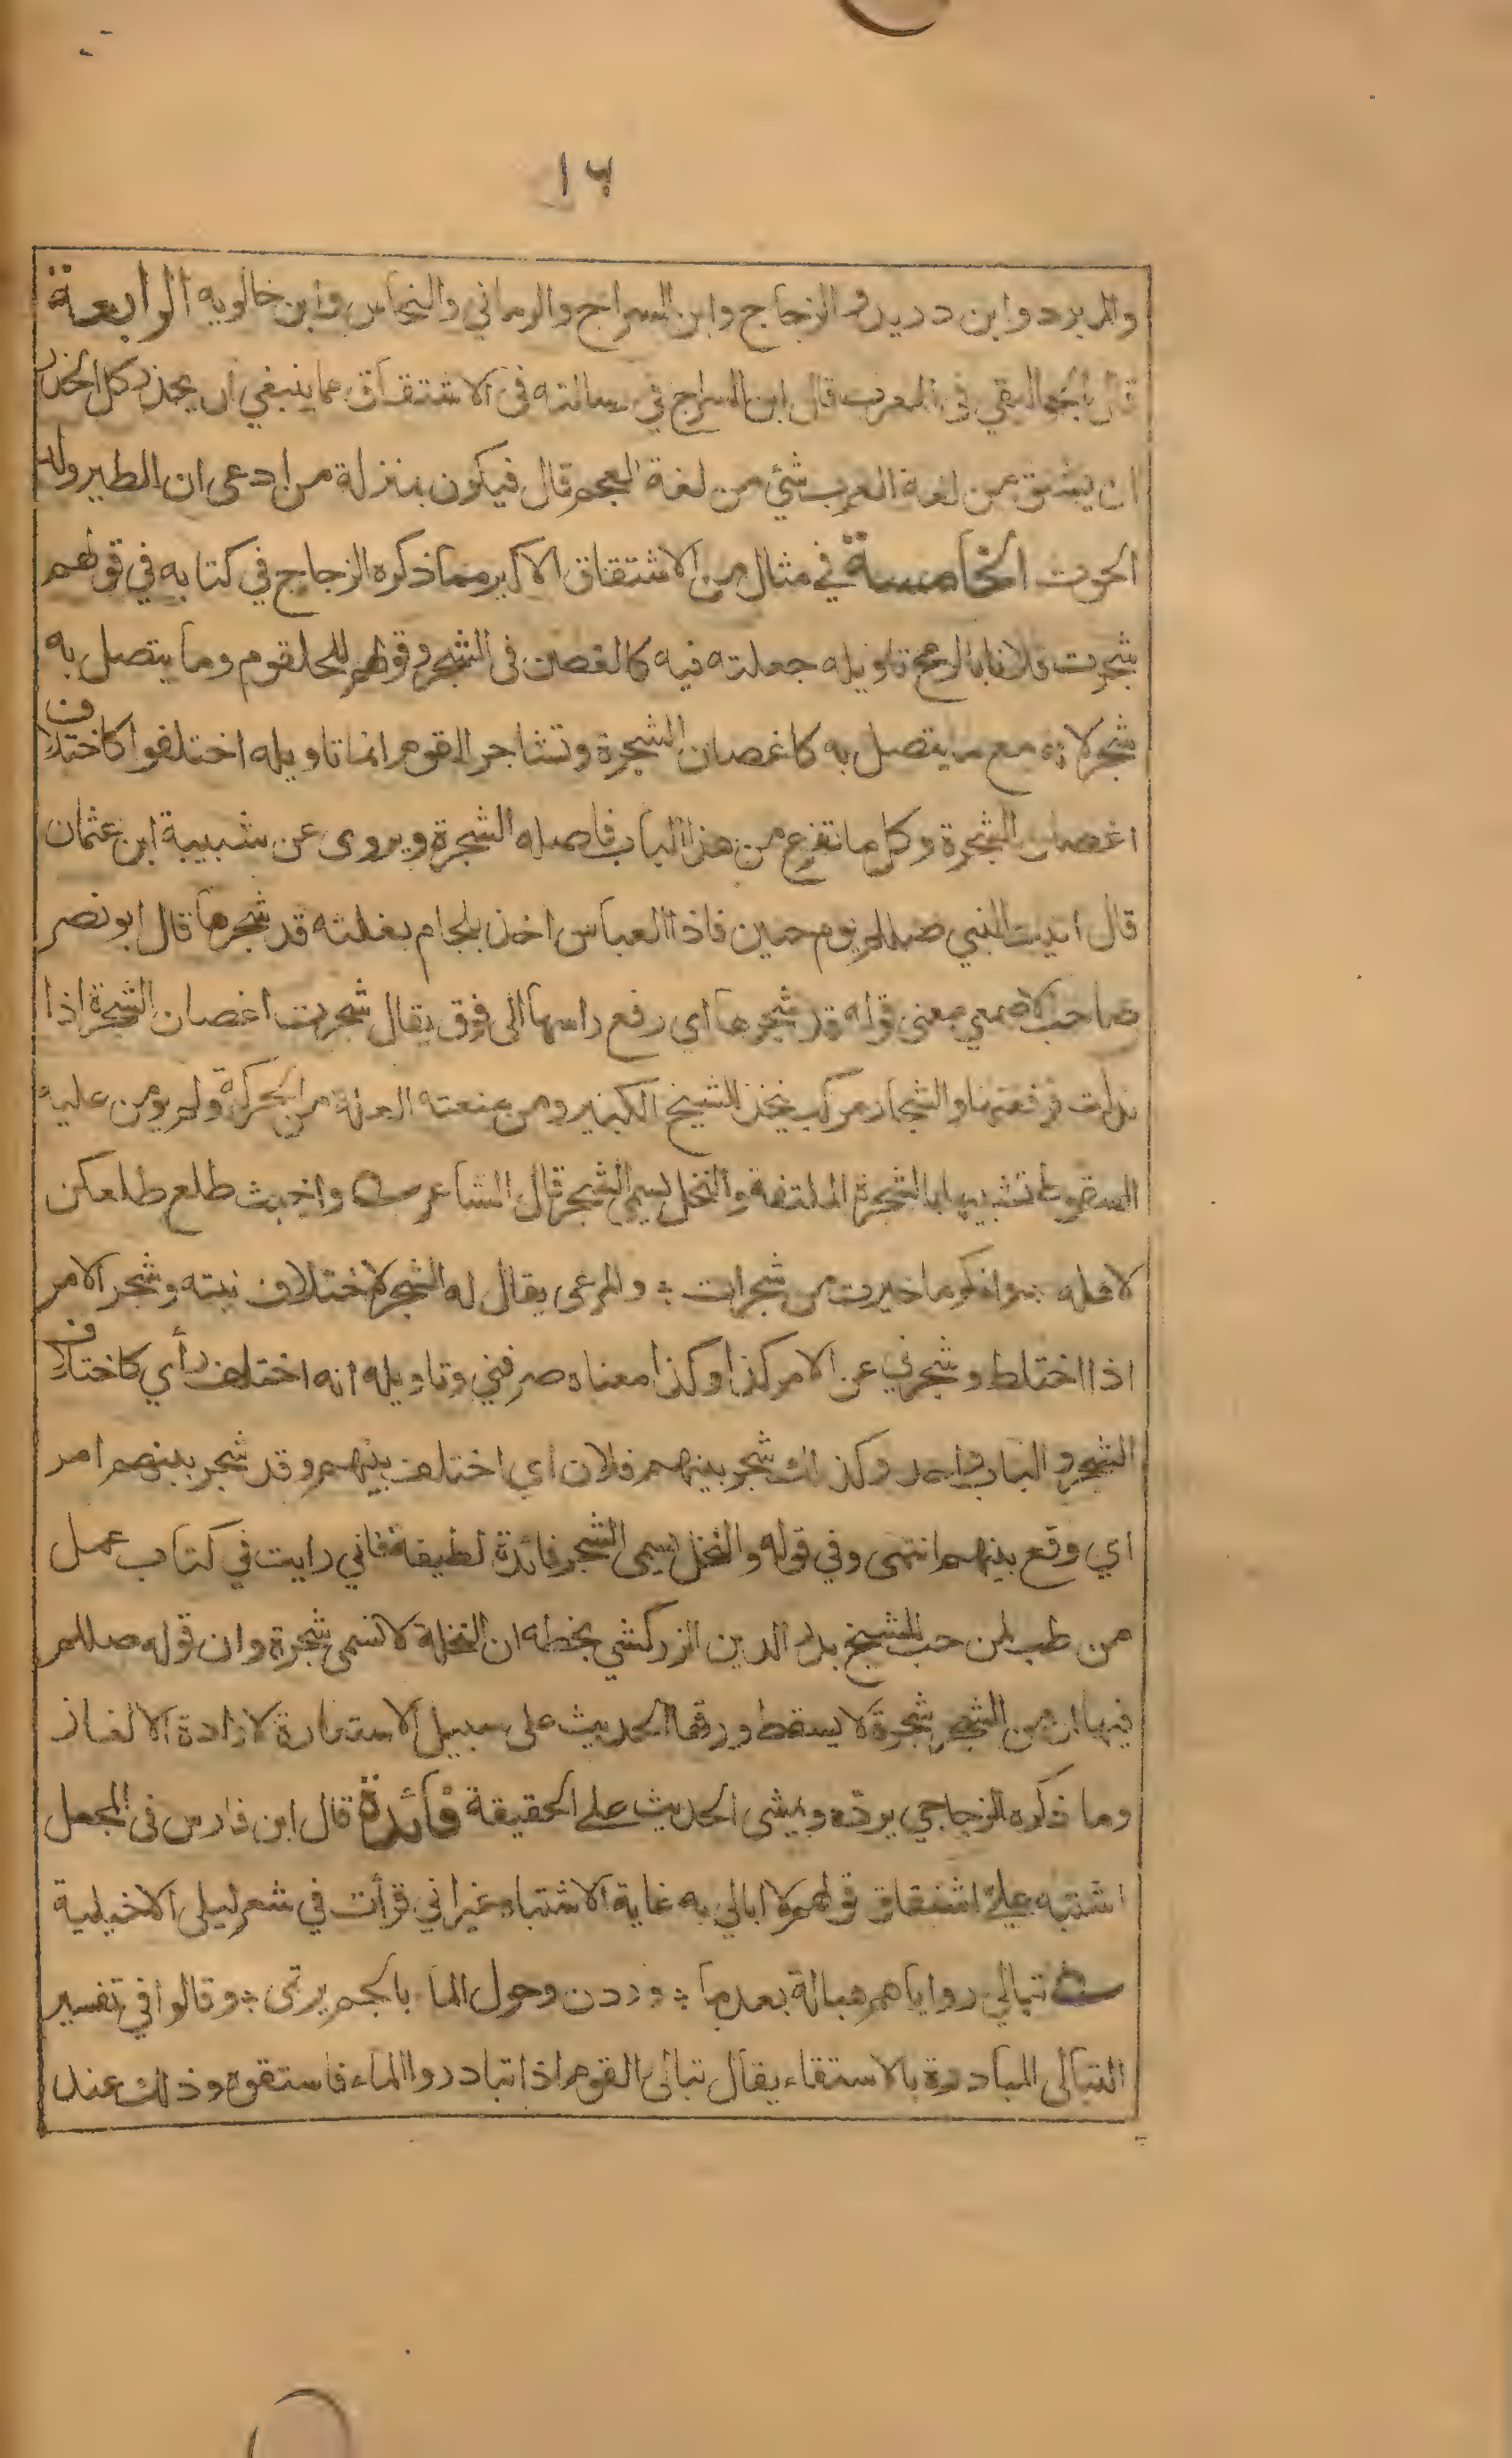 ١٦
والمبرد وابن دريد والزجاج وابن السراج والرماني والنحاس وابن خالويه الرابعة
قال الجواليقي في المعرب قال ابن السراج في رسالته في الاشتقاق مما ينبغي ان يحذر كل الحذر
ان يشتق من لغة العرب شئ من لغة العجم قال فيكون بمنزلة من ادعى ان الطير ولد
الحوت الخامسة في مثال من الاشتقاق الاكبر مما ذكره الزجاج في كتابه في قولهم
شجرت فلانا بالرمح تاويله جعلته فيه كالغصن في الشجر وقولهم للحلقوم وما يتصل به
شجر لانه مع ما يتصل به كاغصان الشجرة وتشاجر القوم انما تاويله اختلفوا كاختلاف
اغصان الشجرة وكل ما تفرع من هذا الباب فاصله الشجرة ويروى عن شبيبة ابن عثمان
قال اتيت النبي صللم يوم حنين فاذا العباس اخذ بلجام بغلته قد شجرها قال ابو نصر
صاحب الاصمعي معنى قوله قد شجرها اي رفع راسها الى فوق يقال شجرت اغصان الشجرة اذا
تدلت فرفعتها والشجار مركب يتخذ للشيخ الكبير ومن منعته العلة من الحركة ولم يومن عليه
السقوط تشبيها بالشجرة الملتفة والنخل يسمى الشجر قال الشاعر واخبث طلع طلعكن
لاهله وانكر ما خيرت من شجرات والمرعى يقال له الشجر لاختلاف نبته وشجر الامر
اذا اختلط وشجرني عن الامر كذا وكذا معناه صرفني وتاويله انه اختلف رأي كاختلاف
الشجر والباب واحد وكذلك شجر بينهم فلان اي اختلف بينهم وقد شجر بينهم امر
اي وقع بينهم انتهى وفي قوله والنخل يسمى الشجر فائدة لطيفة فاني رايت في كتاب عمل
من طب لمن حب للشيخ بدر الدين الزركشي بخطه ان النخلة لا تسمى شجرة وان قوله صللم
فيها ان من الشجر شجرة لا يسقط ورقها الحديث على سبيل الاستعارة لارادة الالغاز
وما ذكره الزجاجي يرده ويمشى الحديث على الحقيقة فائدة قال ابن فارس في المجمل
اشتبه علي اشتقاق قولهم لا ابالي به غاية الاشتباه غير اني قرأت في شعر ليلى الاخيلية
تبالي رواياهم هبالة بعدما وردن وحول الماء بالجم يرتمى وقالوا في تفسير
التبالي المبادرة بالاستقاء يقال تبالى القوم اذا تبادروا الماء فاستقوه وذلك عند